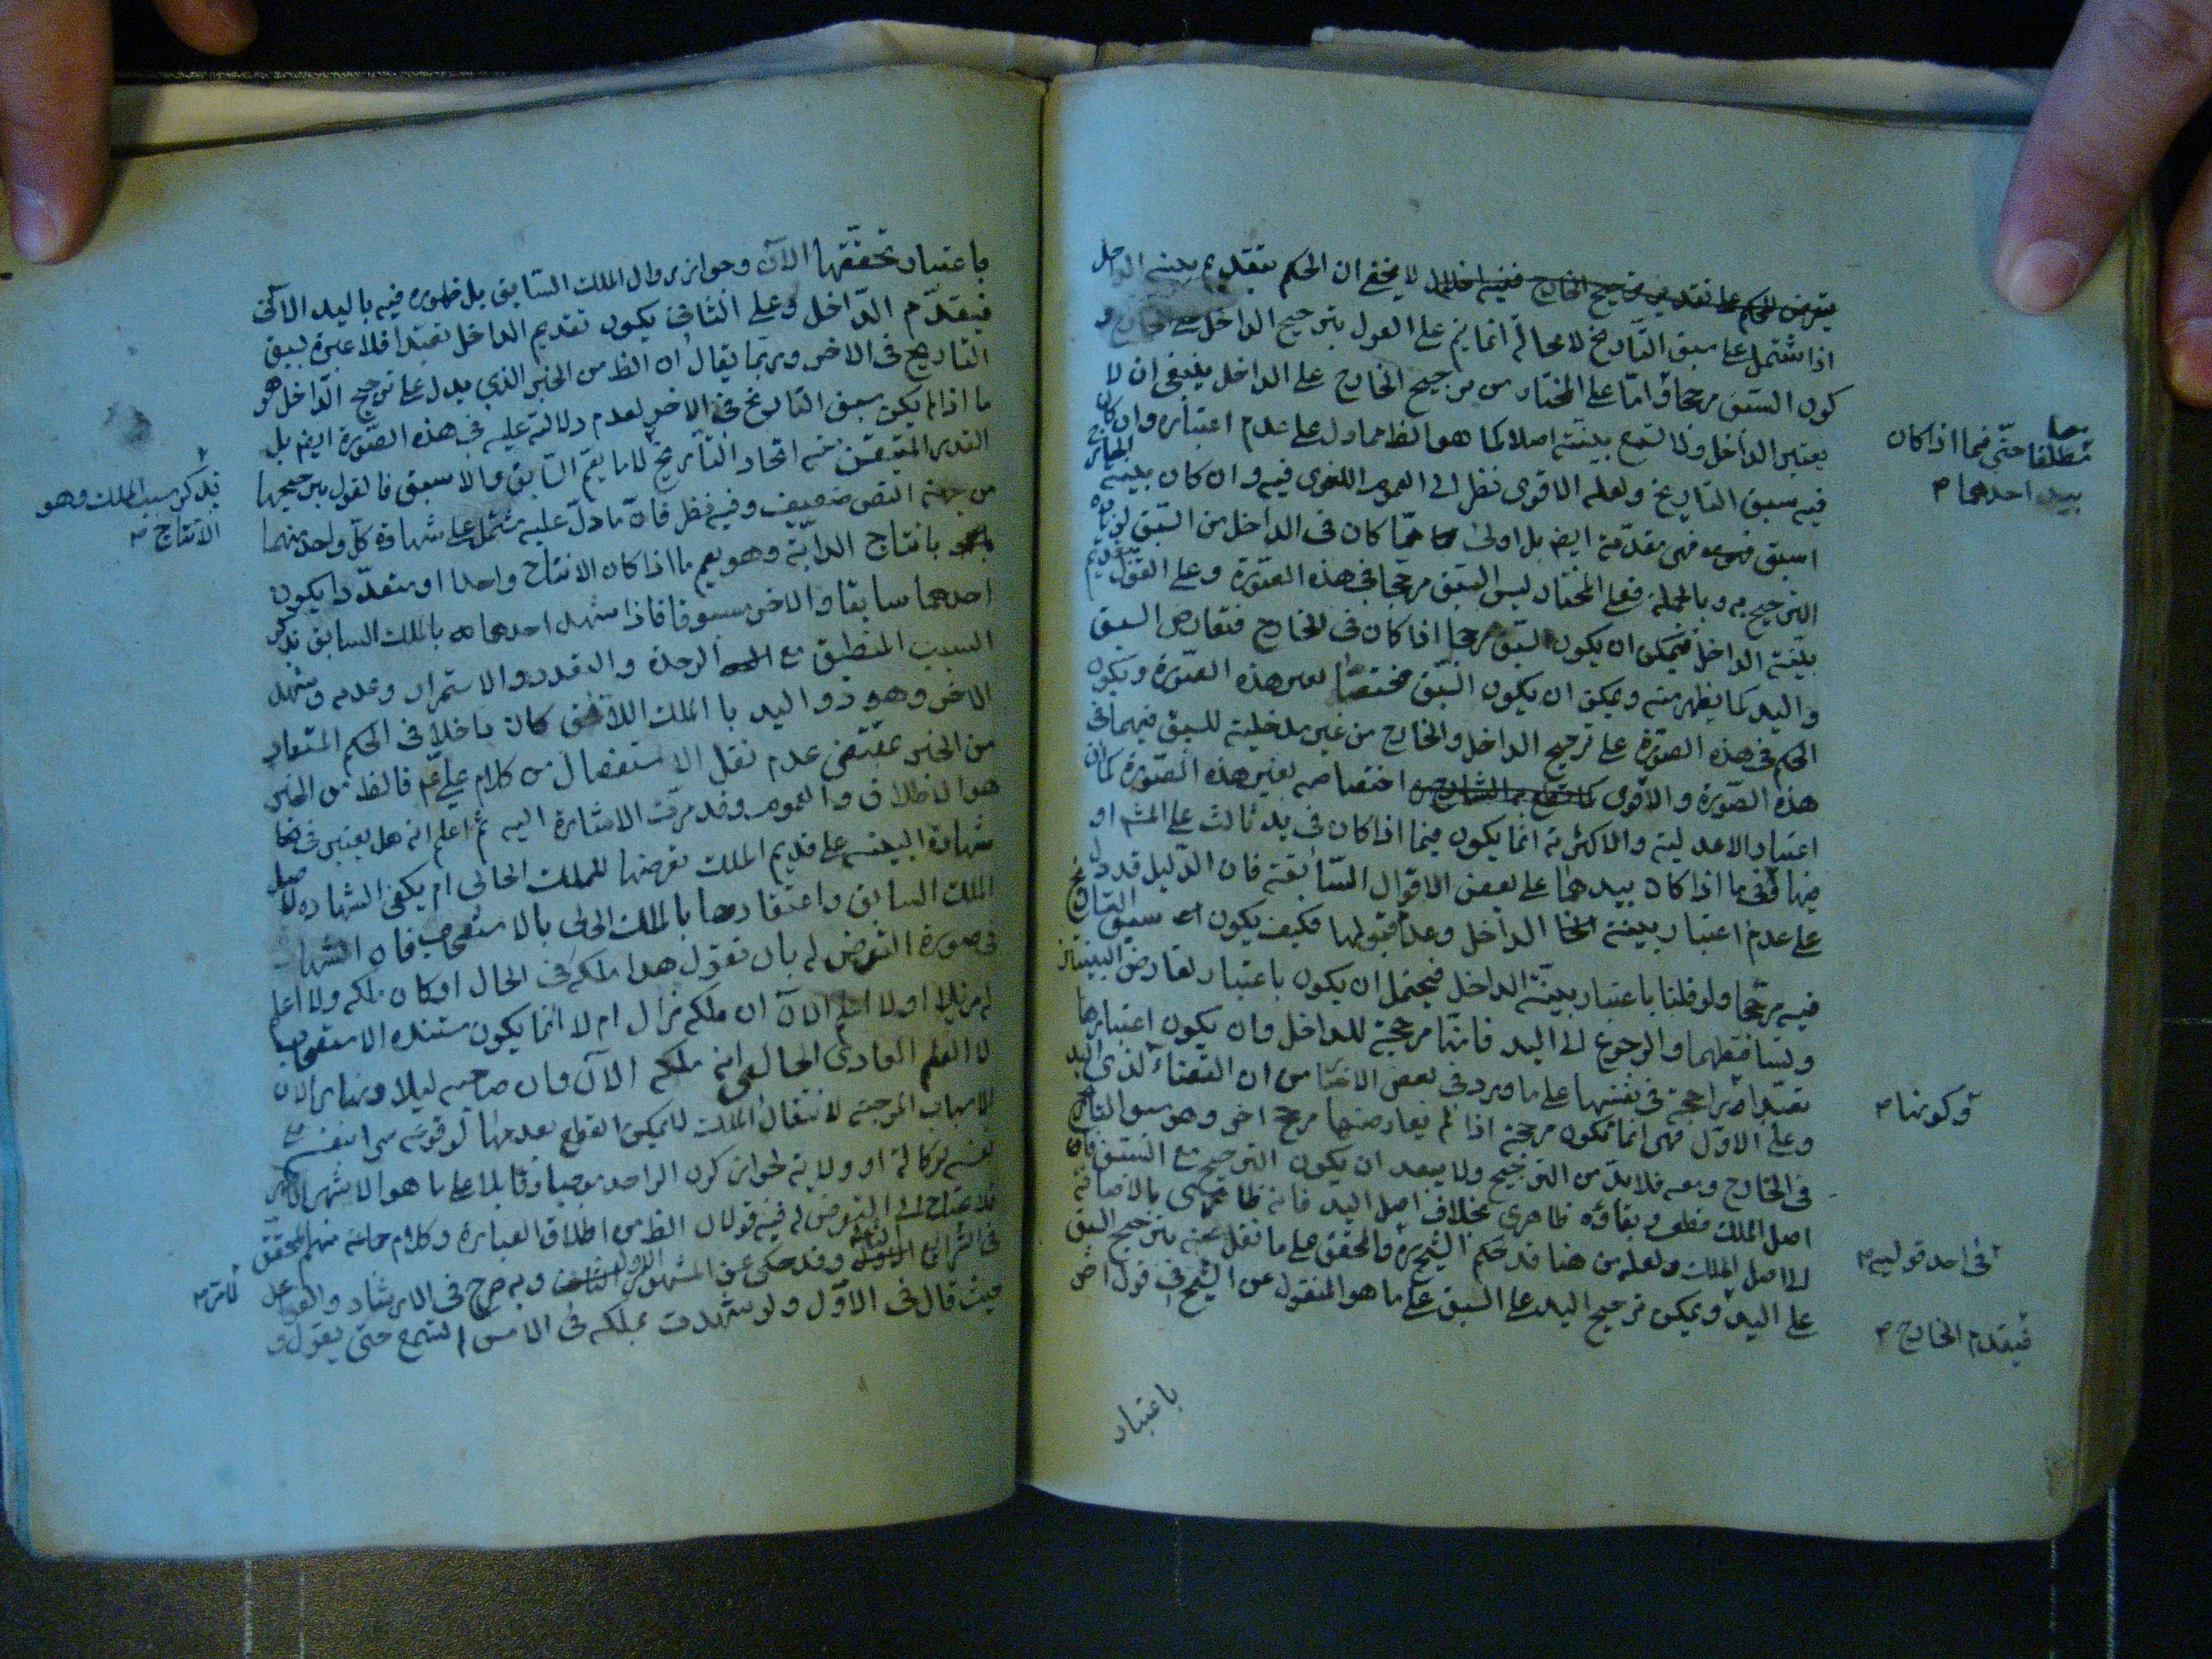 لا يخفى ان الحكم بتقديم بينة الداخل
اذا اشتمل على سبق التاريخ لا محالة انما يتم على القول بترجيح الداخل على الخارج و
كون السبق مرجحا و امّا على المختار من ترجيح الخارج على الداخل ينبغى ان لا
يعتبر الداخل ولا تسمع بينته اصلا كما هو الظ مما دل على عدم اعتباره وان كان
فيه سبق التاريخ ولعله الاقوى نظرا الى العموم اللغوى فيه و ان كان بينة الخارج
اسبق فهى مقدّمة ايضا بل اولى ممّا كان فى الداخل من السّبق
الترجيح به و بالجملة فعلى المختار ليس السّبق مرجحا فى هذه الصّورة وعلى القول بتقديم
بيّنة الداخل فيمكن ان يكون السّبق مرجحا اذا كان فى الخارج فتعارض السبق
واليد كما يظهر منه ويمكن ان يكون السّبق مختصّا بغير هذه الصّورة ويكون
الحكم فى هذه الصّورة على ترجيح الداخل والخارج من غير مدخلية للسبق فيهما فى
هذه الصّورة والاقوى اختصاصه بغير هذه الصّورة كما ان
اعتبار الاعدلية والاكثرية انما يكون فيما اذا كان فى يد ثالث على المش او
فيها وفى ما اذا كان بيدهما على بعض الاقوال السّابقة فان الدّليل قد دل
على عدم اعتبار بينة الداخل وعدم قبولها فكيف يكون سبق التاريخ
فيه مرجّحا ولو قلنا باعتبار بيّنة الداخل فيحتمل ان يكون باعتبار تعارض البينتين
وتساقطهما والرجوع الى اليد فانّها مرجحة للداخل وان يكون اعتبارها
تعبّدا راجحة فى نفسها على ما ورد فى بعض الاخبا من ان القضاء لذى اليد
وعلى الاوّل فهى انما تكون مرجحة اذا لم يعارضها مرجح اخر وهو سبق التاريخ
فى الخارج ومعه فلابدّ من الترجيح ولا يبعد ان يكون الترجيح مع السّبق فان
اصل الملك قطعى و بقاؤه ظاهرى بخلاف اصل اليد فانه ظاهرى بالاضافة
الى اصل الملك ولعله من هنا قد حكم الشيخ والمحقق على ما نقل عنه بترجيح السبق
على اليد ويمكن ترجيح اليد على السبق على ما هو المنقول عن الشيخ فى قول اخر
مطلقا حتّى فيما اذا كان
بيد احدهما
و كونها
فى احد قوليه
فيقدم الخارج
باعتبار
باعتبار تحققها الآن وجواز زوال الملك السّابق بل ظهوره فيه باليد الآتى
فيقدّم الدّاخل وعلى الثانى يكون تقديم الداخل تعبّدا فلا عبرة بسبق
التاريخ فى الاخر وربّما يقال ان الظ من الخبر الذى يدل على ترجيح الدّاخل هو
ما اذا لم يكن سبق التاريخ فى الاخر لعدم دلالته عليه فى هذه الصّورة ايضا بل
القدر المتيقن منه اتحاد التّأريخ لا ما يعمّ السّابق والاسبق فالقول بترجيحها
من جهة النص ضعيف وفيه نظر فان ما دلّ عليه مشتمل على شهادة كلّ واحد منهما
بانتاج الدابّة وهو يعم ما اذا كان الانتاج واحدا او متعدّدا يكون
احدهما سابقا والاخر مسبوقا فاذا شهد احدهما بالملك السابق بذكر
السبب المنطبق مع الوحدة والتعدد والاستمرار وعدمه وشهد
الاخر وهو ذو اليد بالملك اللاحق كان داخلا فى الحكم المستفاد
من الخبر بمقتضى عدم نقل الاستفصال من كلام على عم فالظ من الخبر
هو الاطلاق والعموم وقد مرّت الاشارة اليه ثم اعلم انه هل يعتبر فى
شهادة البينة على قديم الملك تعرضها للملك الحالى ام يكفى الشهادة
الملك السابق واعتقادها بالملك الحالى بالاستصحاب فان
فى صورة التعرض له بان تقول هذا ملكه فى الحال او كان ملكه ولا اعلم
له مزيلا او لا اعلم الآن ان ملكه زال ام لا انما يكون مستنده الاستصحاب
لا العلم العادى الحاصل انه ملكه الآن وان صاحبه ليلا ونهارا لان
الاسباب الموجبة لانتقال الملك لا يمكن القطع بعدمها
لنفسه بوكالة او ولاية لجواز كون الواحد موجبا وقابلا على ما هو الاشهر الاظهر
فلا يحتاج الى التعرض له فيه قولان الظ من اطلاق العبارة وكلام جماعة منهم المحقق
فى الشرائع وقد حكى عن المشهور الاول وبه صرح فى الارشاد والقواعد
حيث قال فى الاوّل ولو شهدت بملكه فى الامس لم تسمع حتى يقول و
بذكر سبب الملك وهو
الانتاج